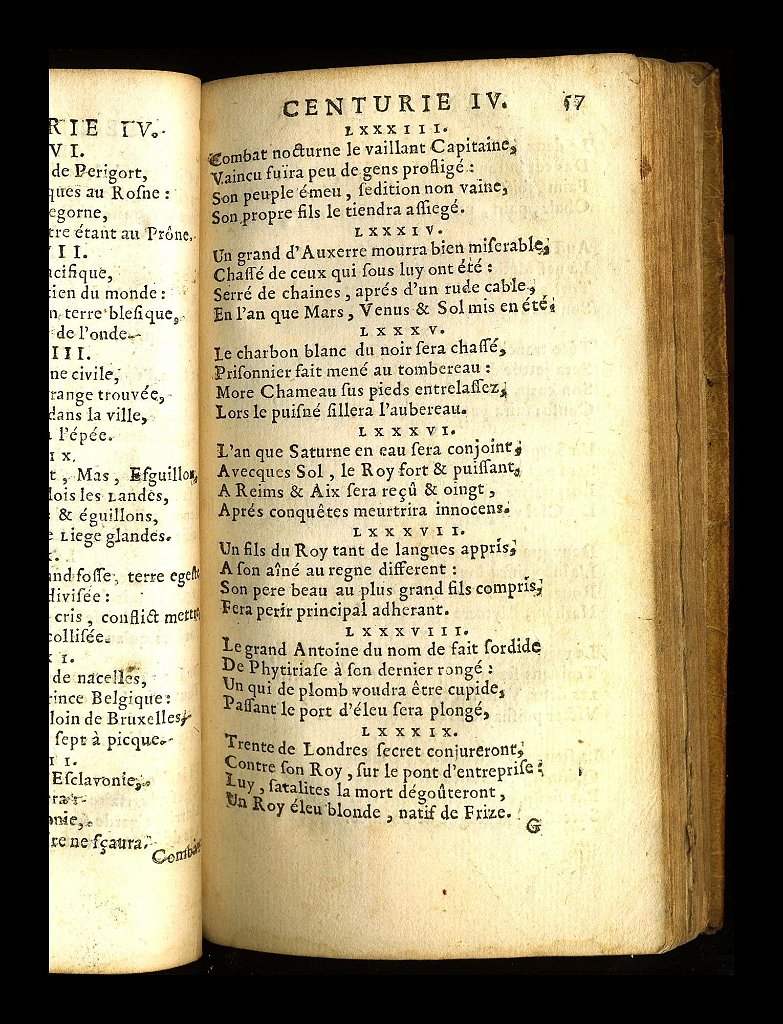 RIE IV.
VI.
de Perigort,
ques au Rosne :
egorne,
tre étant au Prône.
III.
acifique,
ien du monde :
n terre blesique,
de l'onde.
III.
ne civile,
range trouvée,
dans la ville,
l'épée.
IX.
t, Mas, Esguillon,
lois les Landes,
& éguillons,
e Liege glandes.
and fosse, terre egeste
divisée :
cris, conflict mettre
collisée.
XI.
de nacelles,
rince Belgique :
loin de Bruxelles,
sept à picque.
II.
Esclavonie,
onie,
re ne sçaura.
Combat
CENTURIE IV. 57
LXXXIII.
Combat nocturne le vaillant Capitaine,
Vaincu fuïra peu de gens profligé :
Son peuple émeu, sedition non vaine,
Son propre fils le tiendra assiegé.
LXXXIV.
Un grand d'Auxerre mourra bien miserable,
Chassé de ceux qui sous luy ont été :
Serré de chaines, aprés d'un rude cable,
En l'an que Mars, Venus & Sol mis en été.
LXXXV.
Le charbon blanc du noir sera chassé,
Prisonnier fait mené au tombereau :
More Chameau sus pieds entrelassez,
Lors le puisné sillera l'aubereau.
LXXXVI.
L'an que Saturne en eau sera conjoint,
Avecques Sol, le Roy fort & puissant,
A Reims & Aix sera reçû & oingt,
Aprés conquêtes meurtrira innocens.
LXXXVII.
Un fils du Roy tant de langues appris,
A son aîné au regne different :
Son pere beau au plus grand fils compris,
Fera perir principal adherant.
LXXXVIII.
Le grand Antoine du nom de fait sordide
De Phytiriase à son dernier rongé :
Un qui de plomb voudra être cupide,
Passant le port d'éleu sera plongé,
LXXXIX.
Trente de Londres secret conjureront,
Contre son Roy, sur le pont d'entreprise :
Luy, satalites la mort dégoûteront,
Un Roy éleu blonde, natif de Frize.
G